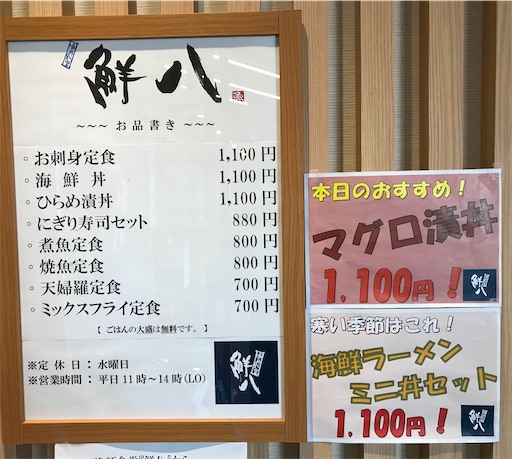 鮮八
～～～ お品書き ～～～
◦お刺身定食 1,100円
◦海鮮丼 1,100円
◦ひらめ漬丼 1,100円
◦にぎり寿司セット 880円
◦煮魚定食 800円
◦焼魚定食 800円
◦天婦羅定食 700円
◦ミックスフライ定食 700円
【 ごはんの大盛は無料です。 】
※定休日：水曜日
※営業時間：平日11時～14時(LO)
鮮八
本日のおすすめ！
マグロ漬丼
1,100円！
鮮八
寒い季節はこれ！
海鮮ラーメン
ミニ丼セット
1,100円！
鮮八